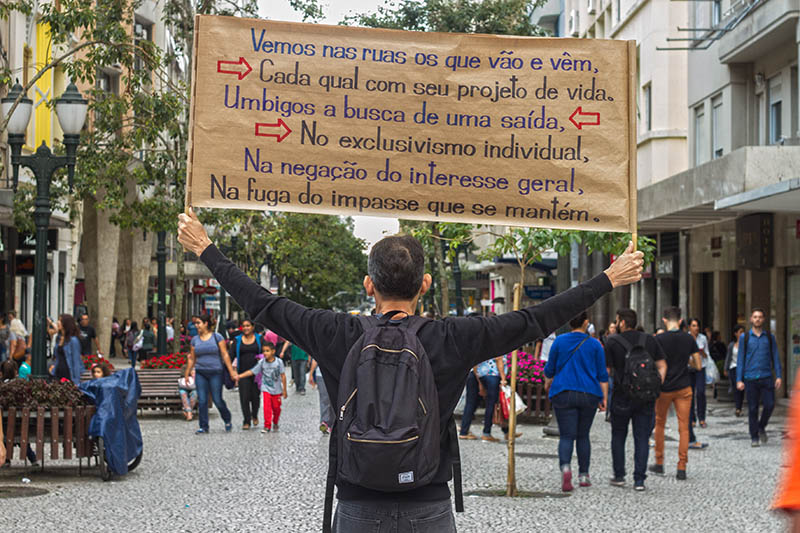 Vemos nas ruas os que vão e vêm,
Cada qual com seu projeto de vida.
Umbigos a busca de uma saída,
No exclusivismo individual,
Na negação do interesse geral,
Na fuga do impasse que se mantém.